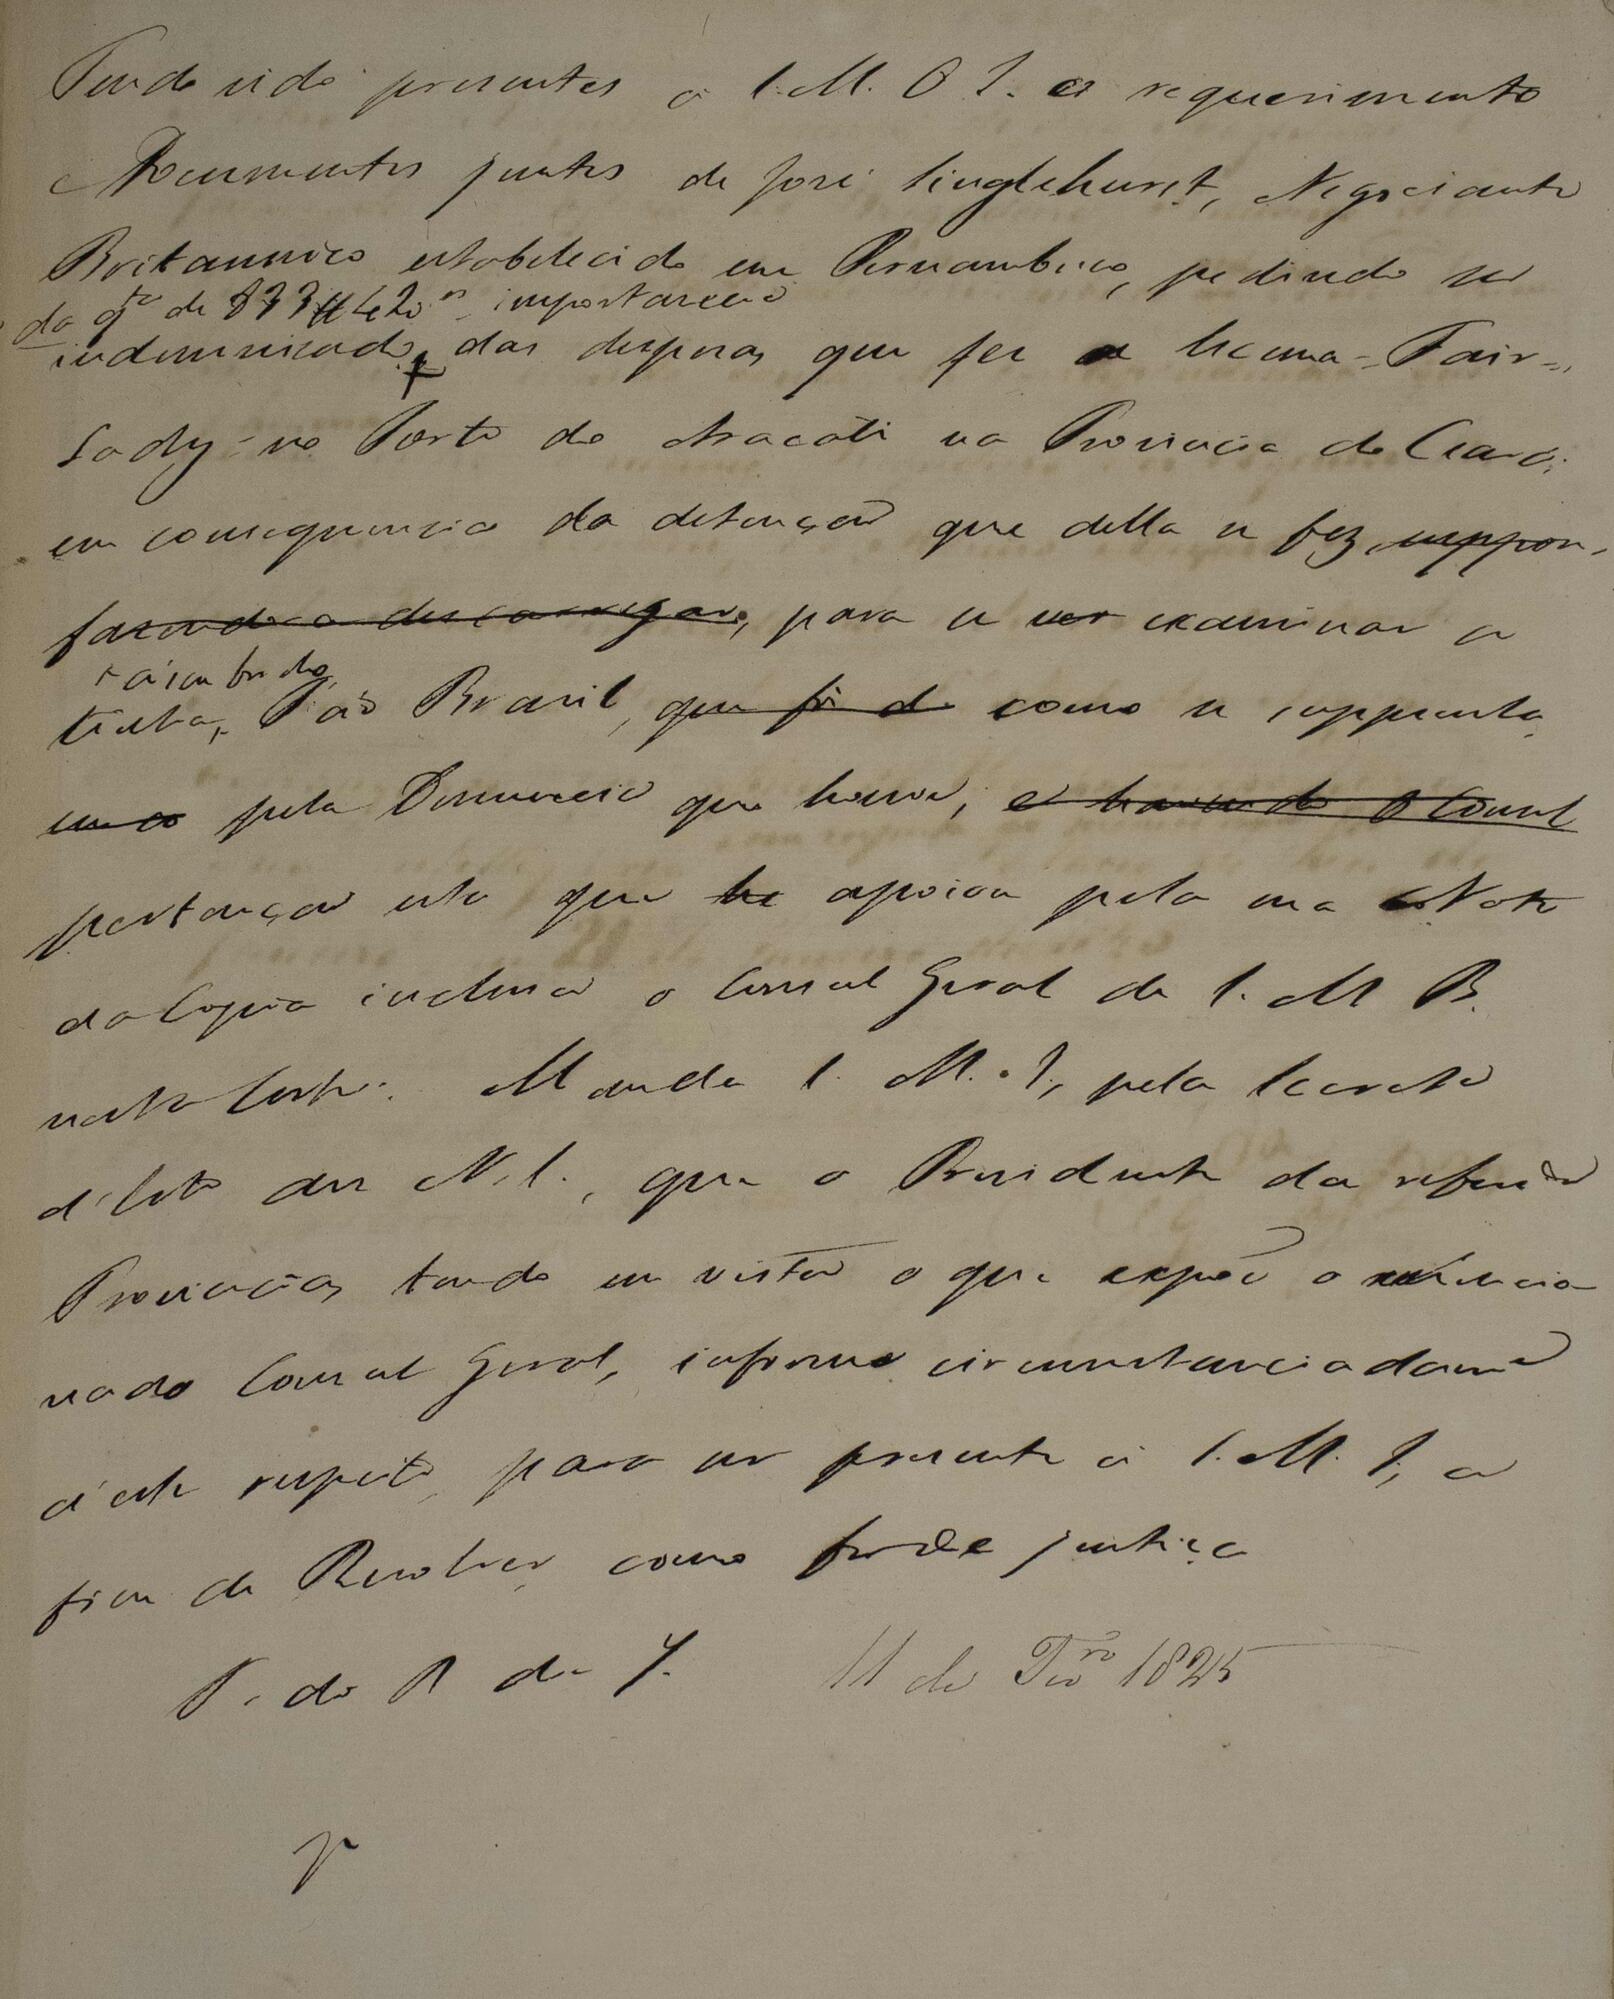 Tendo sido presentes a S. M. O I. o requerimento
e Documentos juntos de José Singlehurst, Negociante
Britannico estabelecido em Pernambuco, pedindo ser
da qta de 833#420rs importancia
indemnisado, das despesas que fez a Escuna - Fair -
Lady - no Porto do Aracati na Provincia do Ceará,
em consequencia da detenção que della se fez, suppon,
fazendo-a descarregar, para se ver examinar a
tinha, Páo Brasil, que foi de como se suppunha,
pela Denuncia que houve, e havendo o Consul
pertenção esta que he apoia pela sua Nota
da Copia inclusa o Consul Geral de S. M B.
nesta Corte. Manda S. M. I, pela Secreta
d'Esto dos N. E., que o Presidente da referida
Provincia, tendo em vista o que expõe o mencio
nado Consul Geral, informe circunstanciadame
á este respeito, para ser presente á S. M. I, a
fim de Resolver como for de justiça
P. do R de J. 11 de Fevro 1825